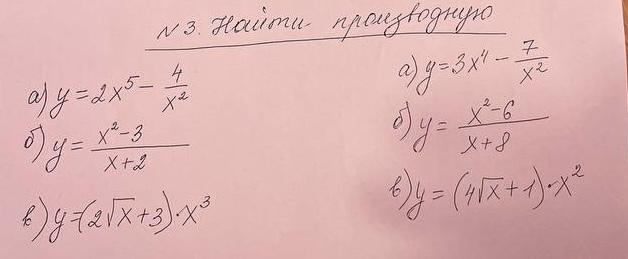 № 3. Найти производную
а) y = 2x⁵ − 4/x²
б) y = (x² − 3)/(x + 2)
в) y = (2√x + 3) · x³
а) y = 3x⁴ − 7/x²
б) y = (x² − 6)/(x + 8)
в) y = (4√x + 1) · x²